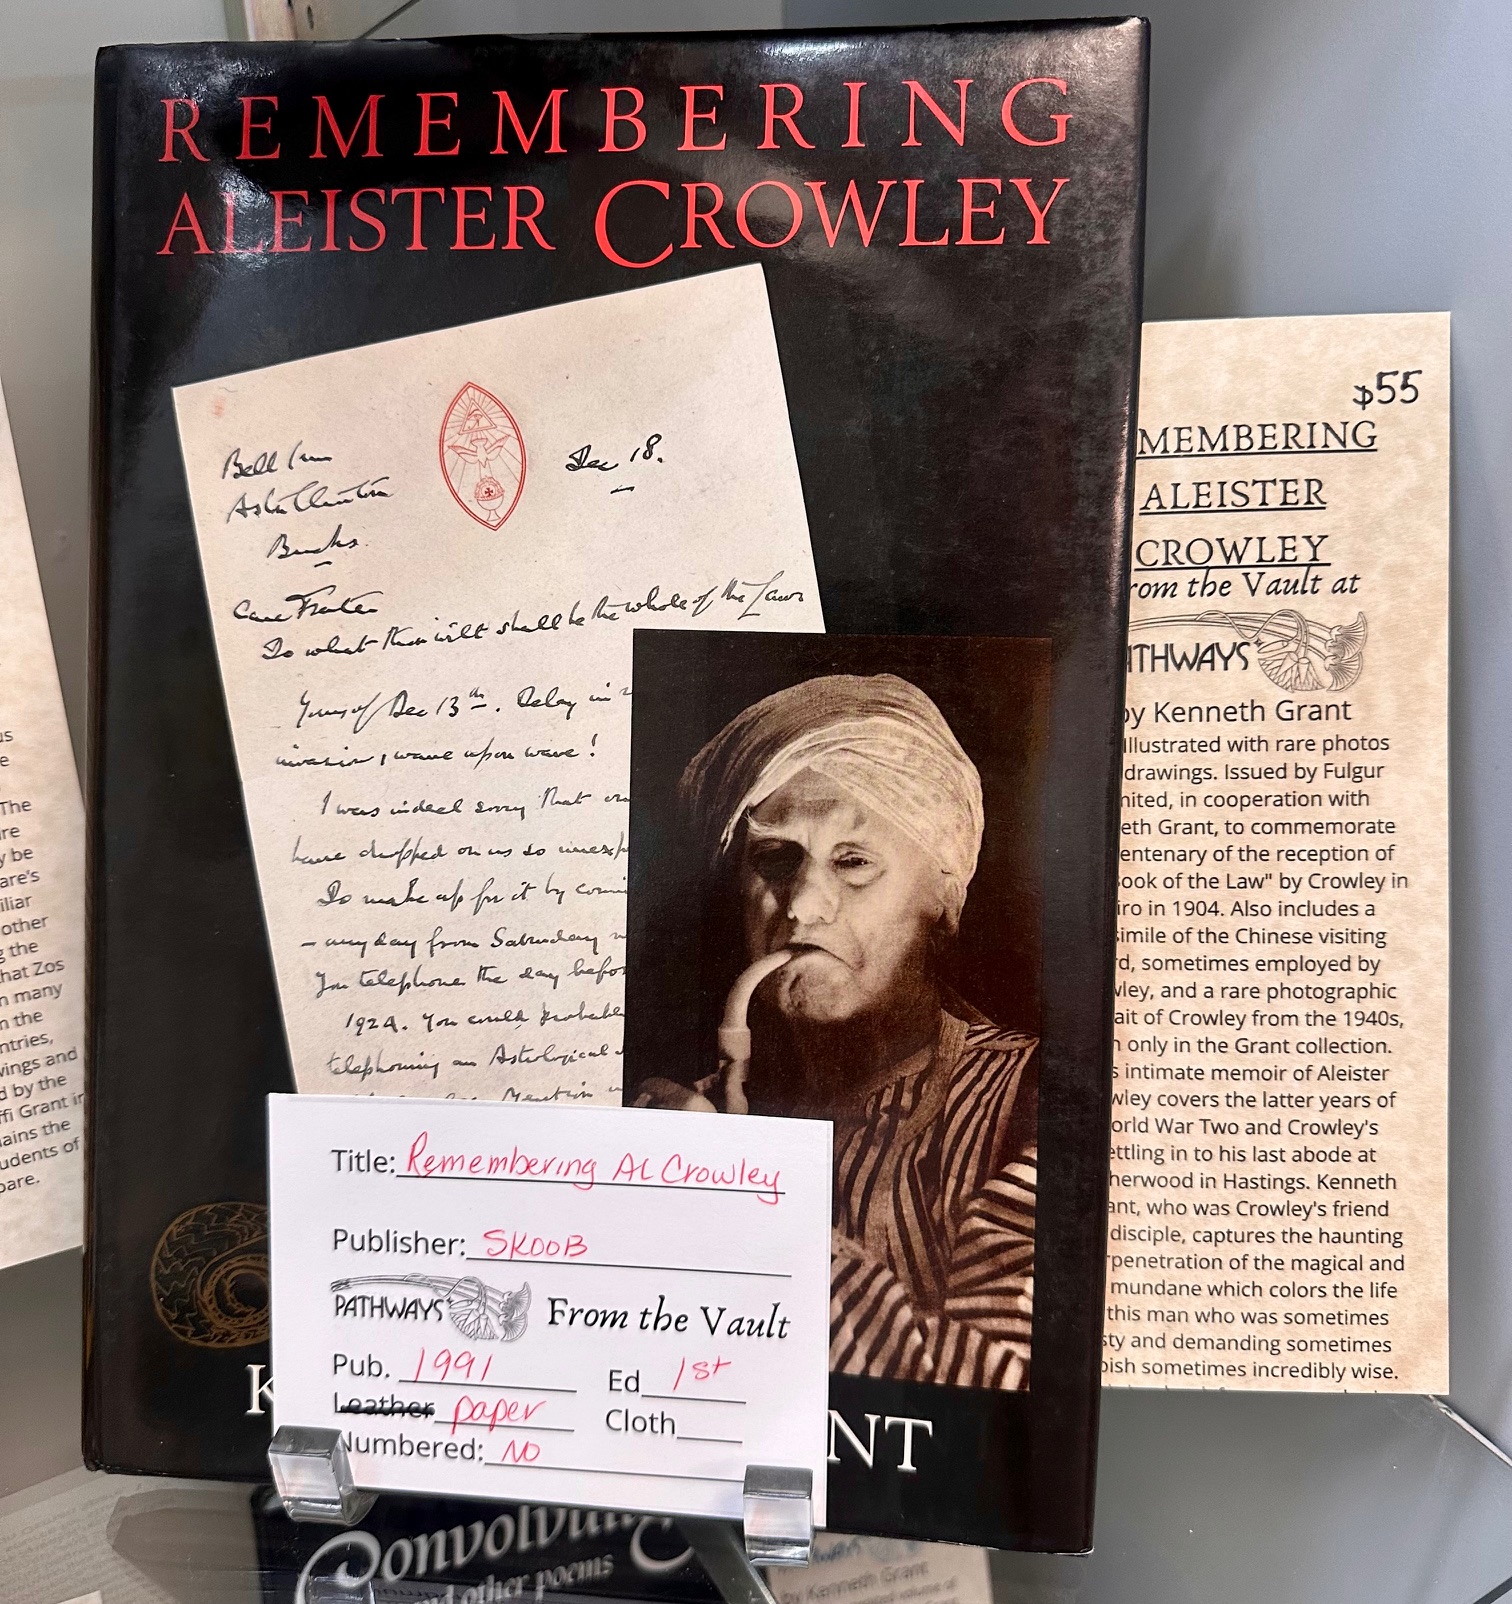 REMEMBERING
ALEISTER CROWLEY
Bell Inn
Aston Clinton
Bucks.
Dec 18.
Care Frater
Do what thou wilt shall be the whole of the Law
Yours of Dec 13th. Delay in
invasion, wave upon wave!
I was indeed sorry that
have dropped on us so
Do make up for it by
- any day from Saturday
telephone the day
1924. You could
telephoning an Astrological
Mention
K
NT
Title: Remembering Al Crowley
Publisher: SKOOB
PATHWAYS From the Vault
Pub. 1991 Ed 1st
Leather paper Cloth
Numbered: NO
$55
MEMBERING
ALEISTER
CROWLEY
rom the Vault at
ATHWAYS
by Kenneth Grant
Illustrated with rare photos
drawings. Issued by Fulgur
mited, in cooperation with
eth Grant, to commemorate
entenary of the reception of
ook of the Law" by Crowley in
iro in 1904. Also includes a
simile of the Chinese visiting
rd, sometimes employed by
wley, and a rare photographic
ait of Crowley from the 1940s,
n only in the Grant collection.
s intimate memoir of Aleister
wley covers the latter years of
orld War Two and Crowley's
ettling in to his last abode at
herwood in Hastings. Kenneth
ant, who was Crowley's friend
disciple, captures the haunting
rpenetration of the magical and
mundane which colors the life
this man who was sometimes
sty and demanding sometimes
ish sometimes incredibly wise.
us
e
The
re
y be
are's
iliar
other
g the
hat Zos
n many
n the
ntries,
wings and
d by the
ffi Grant in
ains the
udents of
pare.
Convolvulus
and other poems
by Kenneth Grant